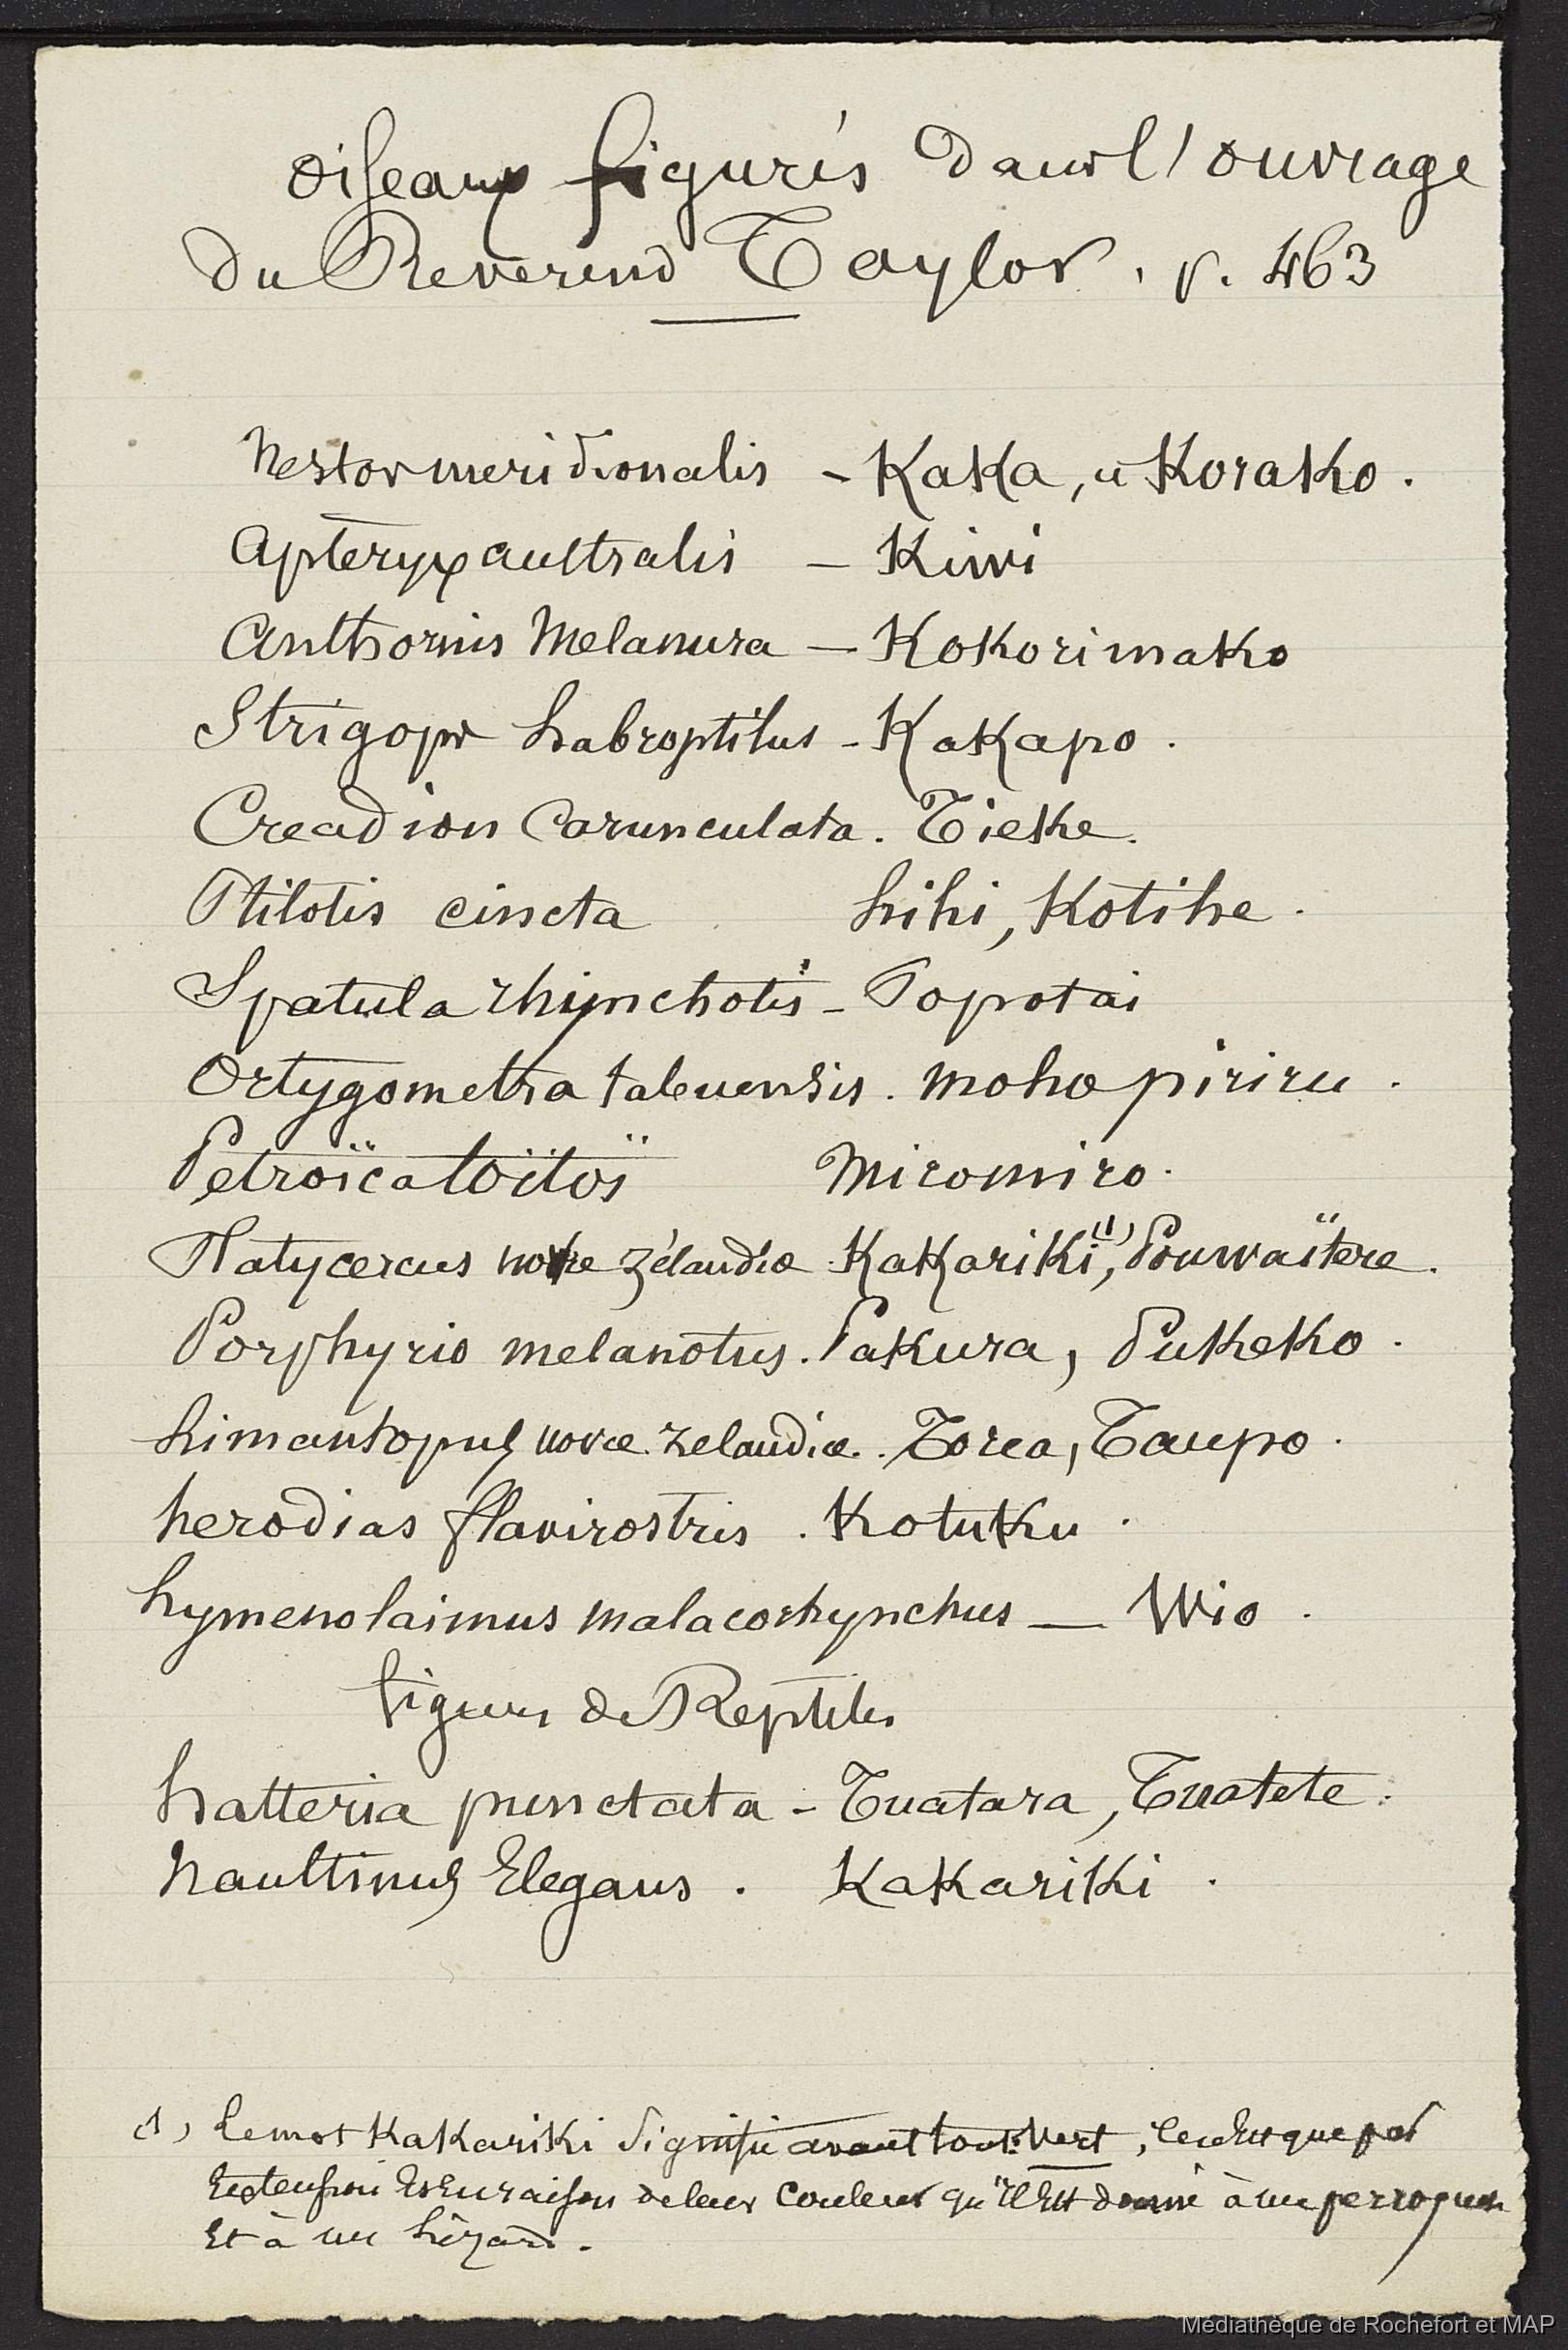 oiseaux figurés dans l'ouvrage
du Reverend Taylor. p. 463
Nestor meridionalis - Kaka, u Korako.
Apteryx australis - Kiwi
Anthornis Melanura - Kokorimako
Strigops habroptilus - Kakapo.
Creadion Carunculata. Tieke.
Ptilotis cincta hihi, Kotihe.
Spatula rhynchotis - Popotai
Ortygometra tabuensis. moho piriru.
Petroïca toïtoï Miromiro.
Platycercus novæ zélandiæ Kakariki (1), Pouwaïtere.
Porphyrio melanotus. Pakura, Pukeko.
himantopus novæ zelandiæ. Torea, Taupo.
herodias flavirostris. Kotuku.
hymenolaimus malacorhynchus — Wio.
figures de Reptiles
hatteria punctata - Tuatara, Tuatete.
Naultinus Elegans. Kakariki.
(1) le mot Kakariki signifie avant tout: Vert, ce n'est que par
Extension Et En raison de leur Couleur qu'il Est donné à un perroquet
Et à un lézard.
Médiathèque de Rochefort et MAP